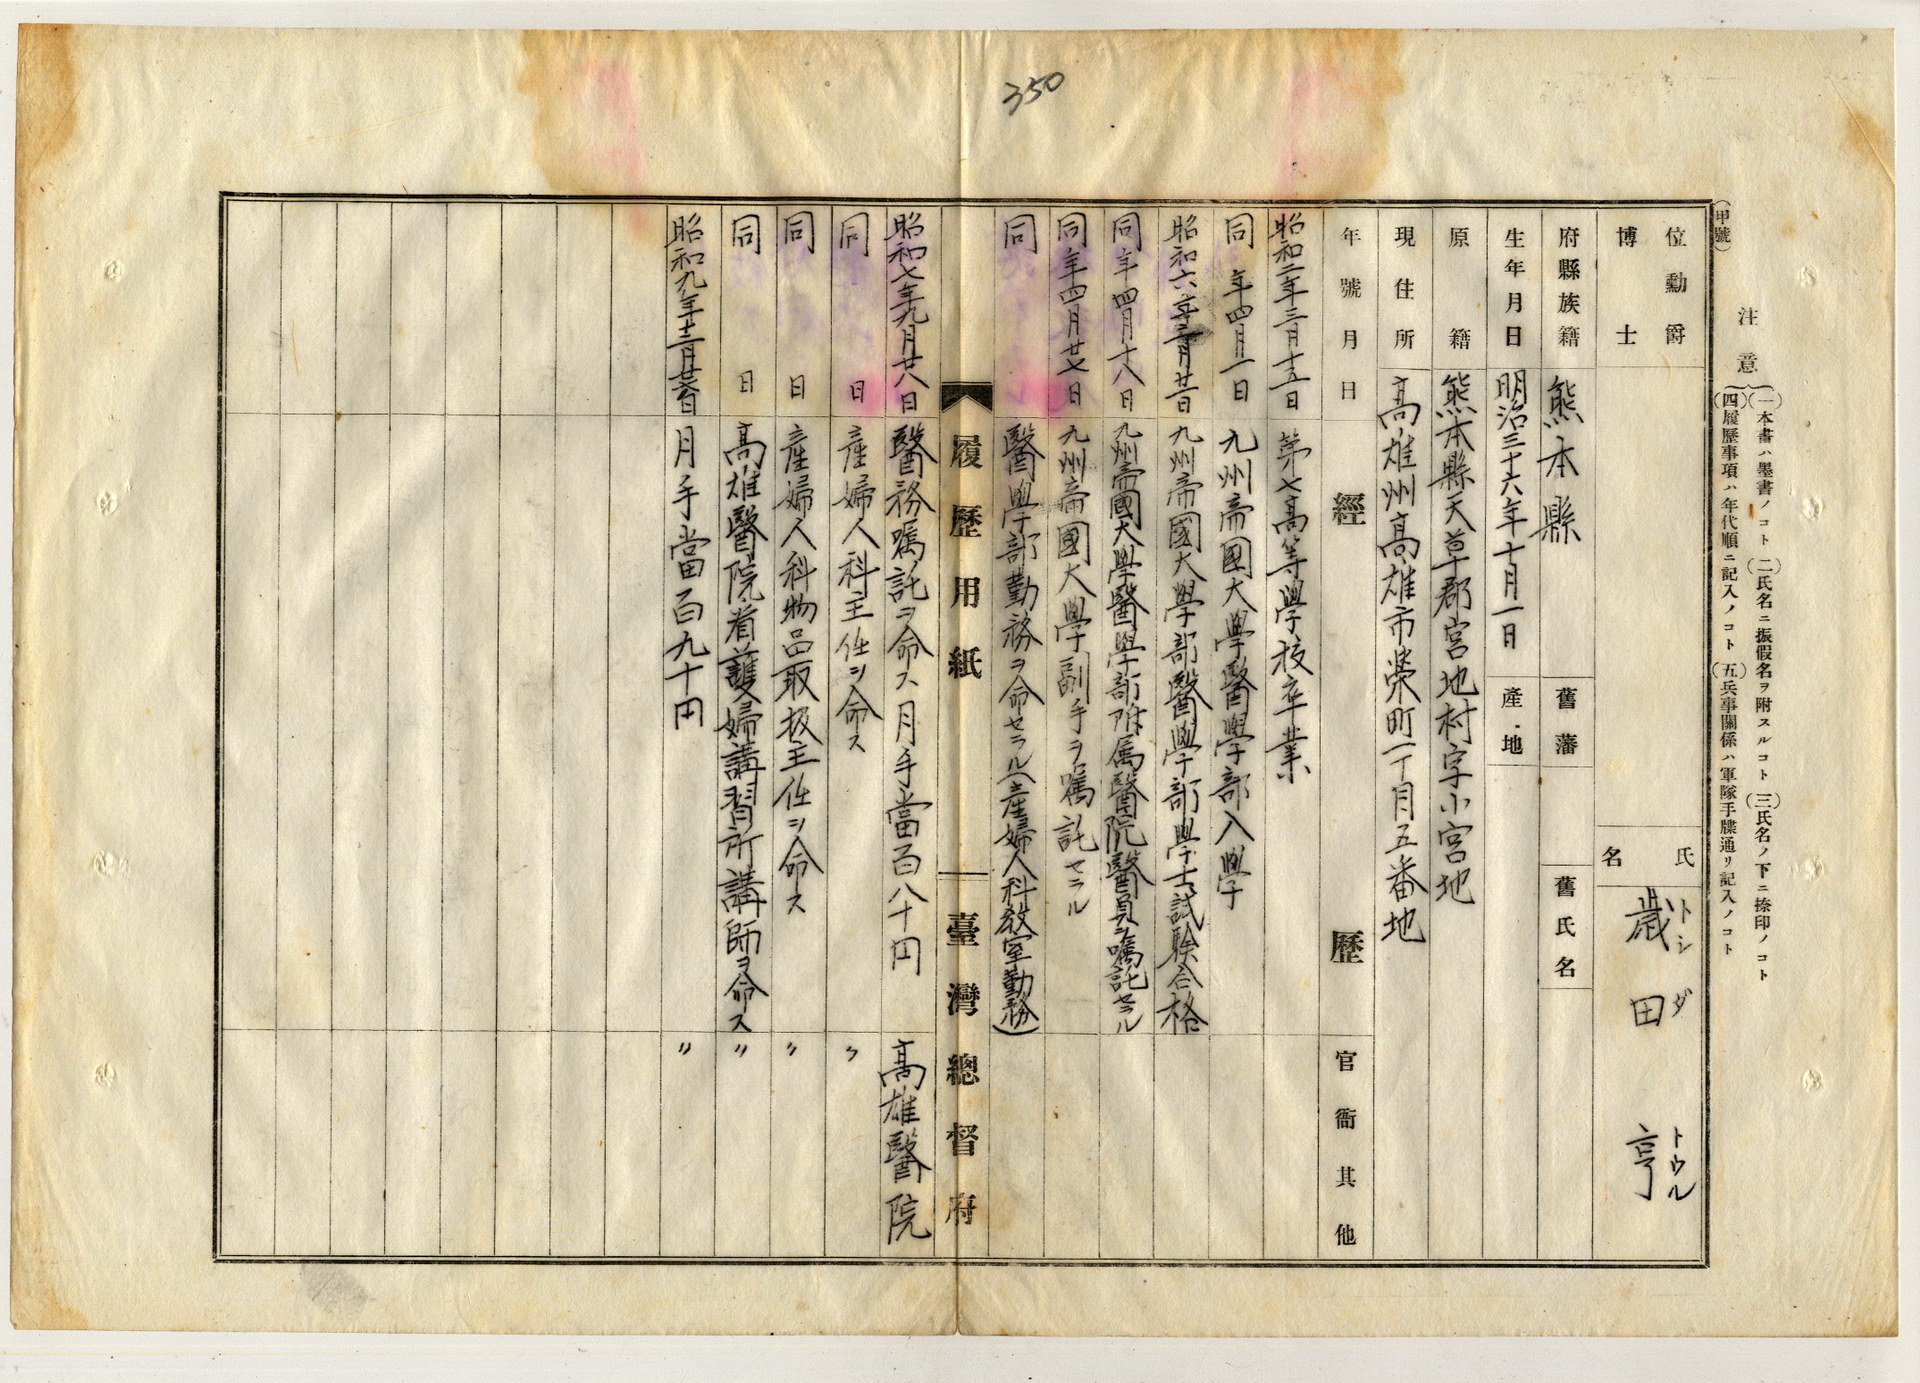 350
(甲號)
注意
(一)本書ハ墨書ノコト (二)氏名ニ振假名ヲ附スルコト (三)氏名ノ下ニ捺印ノコト
(四)履歷事項ハ年代順ニ記入ノコト (五)兵事關係ハ軍隊手牒通リ記入ノコト
位勳爵
博士
氏名
歲田 亨
トシ ダ トウル
府縣族籍 熊本縣
舊藩
舊氏名
生年月日 明治三十六年十月一日
產地
原籍 熊本縣天草郡宮地村字小宮地
現住所 高雄州高雄市榮町一丁目五番地
年號月日 經歷 官衙其他
昭和二年三月十五日 第七高等學校卒業
同年四月一日 九州帝國大學醫學部入學
昭和六年三月廿日 九州帝國大學部醫學部學士試驗合格
同年四月十八日 九州帝國大學醫學部附属醫院醫員ヲ嘱託セラル
同年四月廿七日 九州帝國大學副手ヲ嘱託セラル
同 醫學部勤務ヲ命セラル(產婦人科教室勤務)
履歷用紙 臺灣總督府
昭和七年九月廿八日 醫務嘱託ヲ命ス月手當百八十円 高雄醫院
同日 產婦人科主任ヲ命ス 〃
同日 產婦人科物品取扱主任ヲ命ス 〃
同日 高雄醫院看護婦講習所講師ヲ命ス 〃
昭和九年十二月日 月手當百九十円 〃